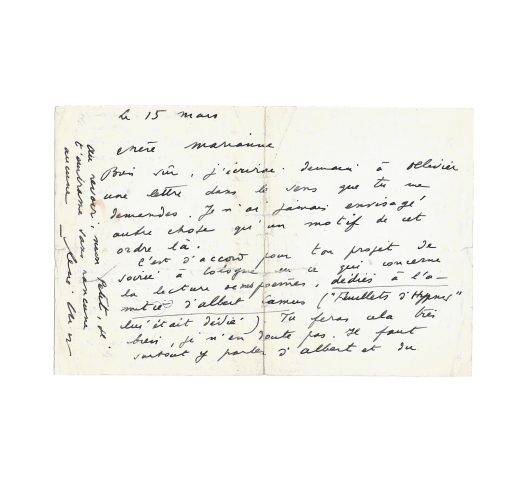 le 15 mars
chère Marianne
Bien sûr, j'écrirai demain à Ollivier
une lettre dans le sens que tu me
demandes. Je n'ai jamais envisagé
autre chose qu'un motif de cet
ordre là.
C'est d'accord pour ton projet de
soirée à Cologne en ce qui concerne
la lecture poèmes, dédiés à l'a-
mitié d'Albert Camus ("Feuillets d'Hypnos"
lui était dédié). Tu feras cela très
bien, je n'en doute pas. Il faut
surtout y parler d'Albert et du
au revoir, mon
t'embrasse sans rancune
aucune